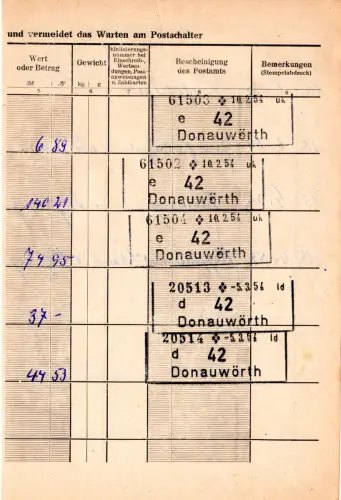 und vermeidet das Warten am Postschalter
Wert
oder Betrag
Gewicht
Einlieferungs-
nummer bei
Einschreib-,
Wertsen-
dungen, Post-
anweisungen
u. Zahlkarten
Bescheinigung
des Postamts
Bemerkungen
(Stempelabdruck)
kg g
5 6 7 8 9
61503 10.2.54 uk
e 42
6 89
Donauwörth
61502 10.2.54 uk
e 42
140 21
Donauwörth
61504 10.2.54 uk
e 42
74 95
Donauwörth
20513 -5.3.54 ld
d 42
37 -
Donauwörth
20514 -5.3.54 ld
d 42
44 53
Donauwörth